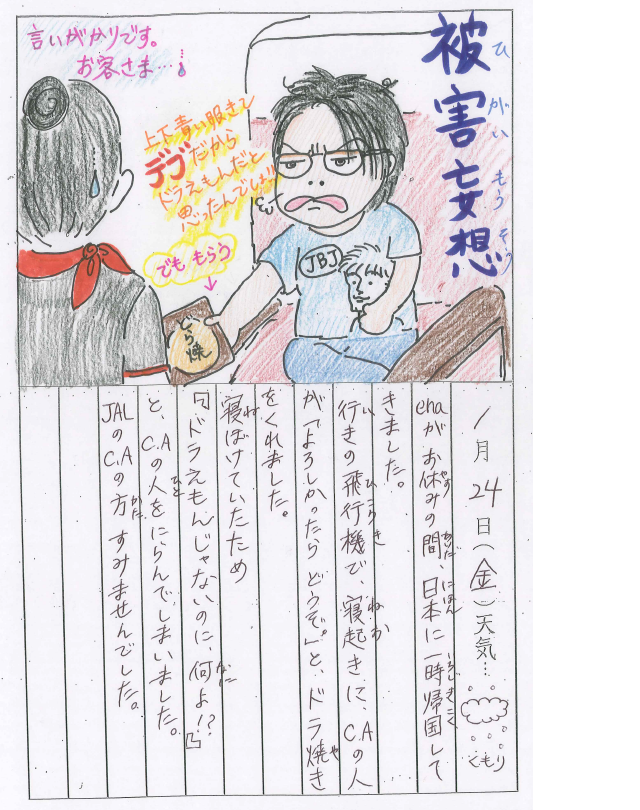 被害妄想
ひがいもうそう
言いがかりです。
お客さま…
上下青い服きて
デブだから
ドラえもんだと
思ったんでしょ!!
でももらう
どら焼
JBJ
1月24日(金)天気…くもり
enaがお休みの間、日本に一時帰国して
きました。
行きの飛行機で、寝起きに、C.Aの人
が「よろしかったらどうぞ。」と、ドラ焼き
をくれました。
寝ぼけていたため
『ドラえもんじゃないのに、何よ!?』
と、C.Aの人をにらんでしまいました。
JALのC.Aの方すみませんでした。